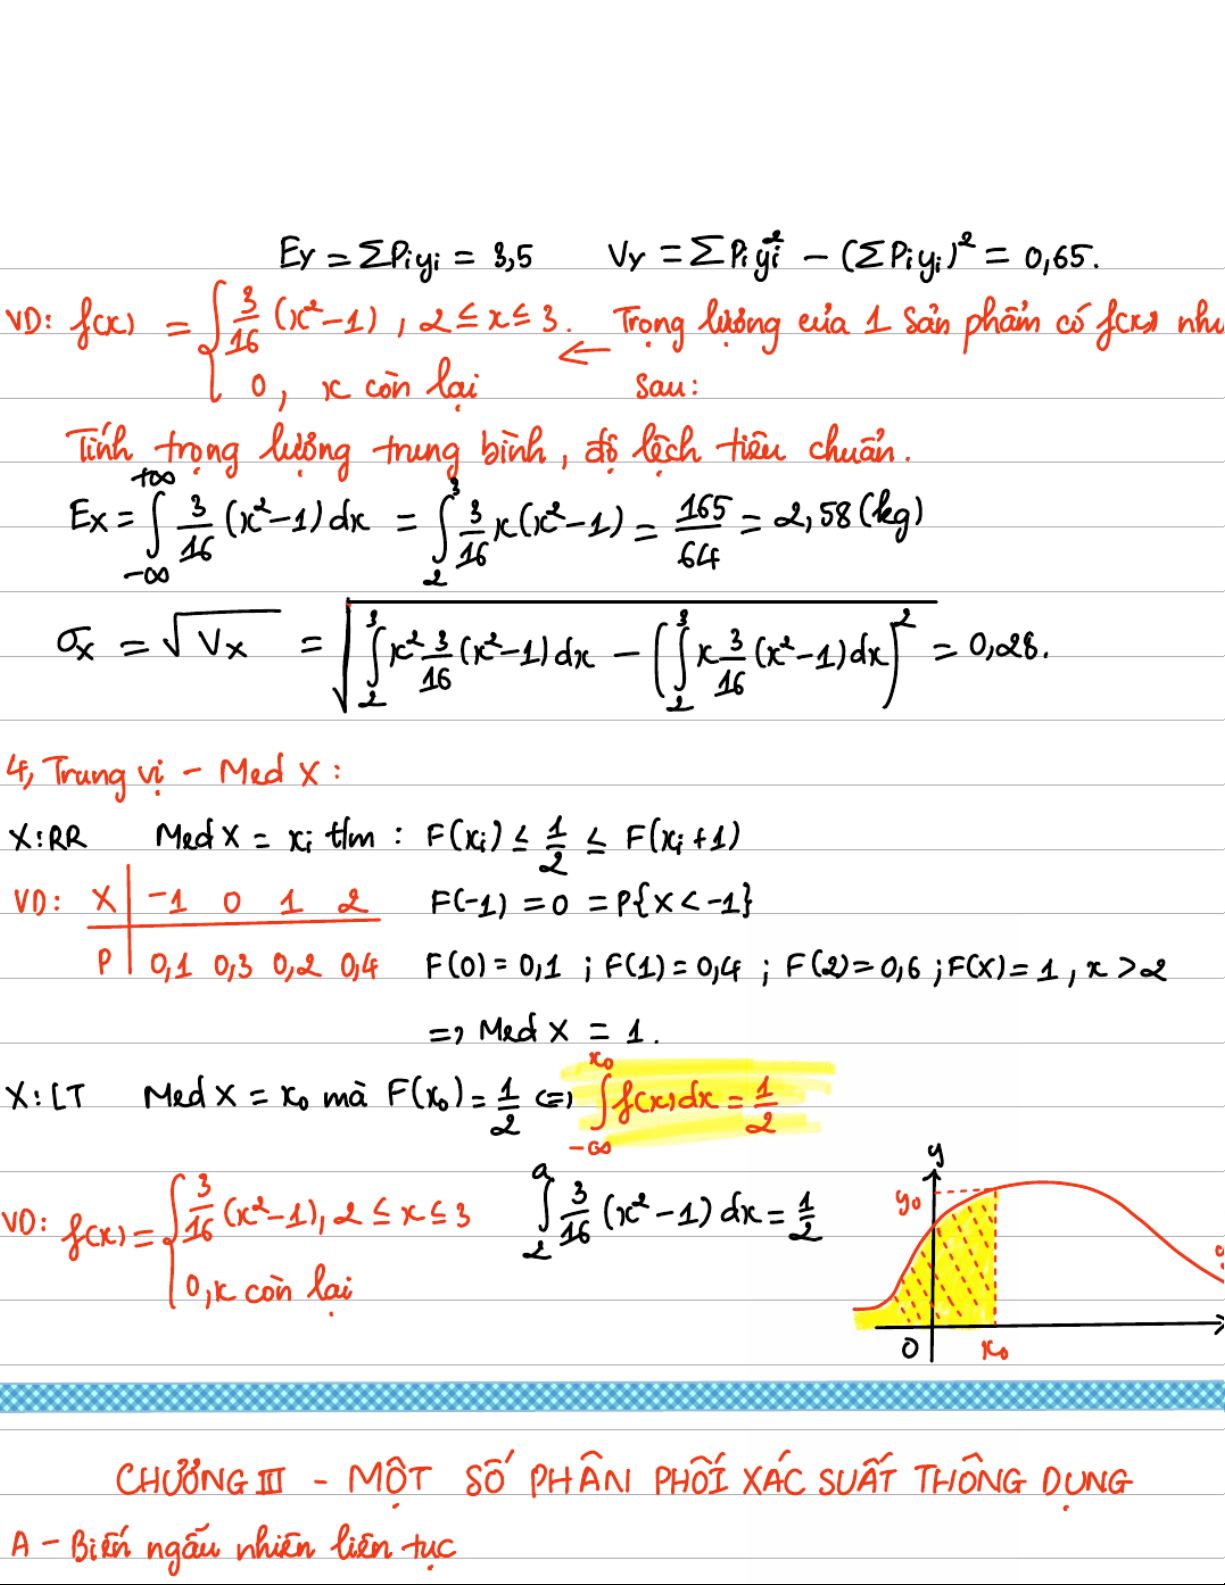 Ey = ΣPiyi = 3,5 Vy = ΣPiyi² − (ΣPiyi)² = 0,65.
VD: f(x) = { 3/16 (x²−1), 2 ≤ x ≤ 3. ← Trọng lượng của 1 sản phẩm có f(x) như
0, x còn lại sau:
Tính trọng lượng trung bình, độ lệch tiêu chuẩn.
Ex = ∫_{−∞}^{+∞} 3/16 (x²−1) dx = ∫_2^3 3/16 x(x²−1) = 165/64 = 2,58 (kg)
σx = √Vx = √(∫_2^3 x² 3/16 (x²−1) dx − (∫_2^3 x 3/16 (x²−1) dx)²) = 0,28.
4, Trung vị - Med X:
X: RR Med X = xi t/m: F(xi) ≤ 1/2 ≤ F(xi+1)
VD: X | −1 0 1 2 F(−1) = 0 = P{X < −1}
P | 0,1 0,3 0,2 0,4 F(0) = 0,1 ; F(1) = 0,4 ; F(2) = 0,6 ; F(X) = 1, x > 2
=> Med X = 1.
X: LT Med X = x₀ mà F(x₀) = 1/2 <=> ∫_{−∞}^{x₀} f(x)dx = 1/2
VD: f(x) = { 3/16 (x²−1), 2 ≤ x ≤ 3 ∫_2^a 3/16 (x²−1) dx = 1/2
0, x còn lại
y
y₀
0 x₀
CHƯƠNG III - MỘT SỐ PHÂN PHỐI XÁC SUẤT THÔNG DỤNG
A - Biến ngẫu nhiên liên tục